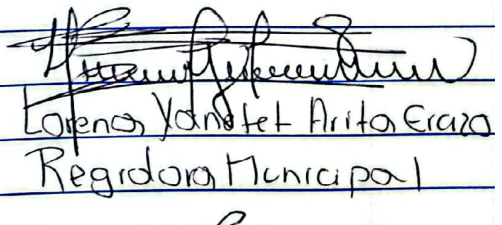 Lorena Yanetet Arita Erazo
Regidora Municipal